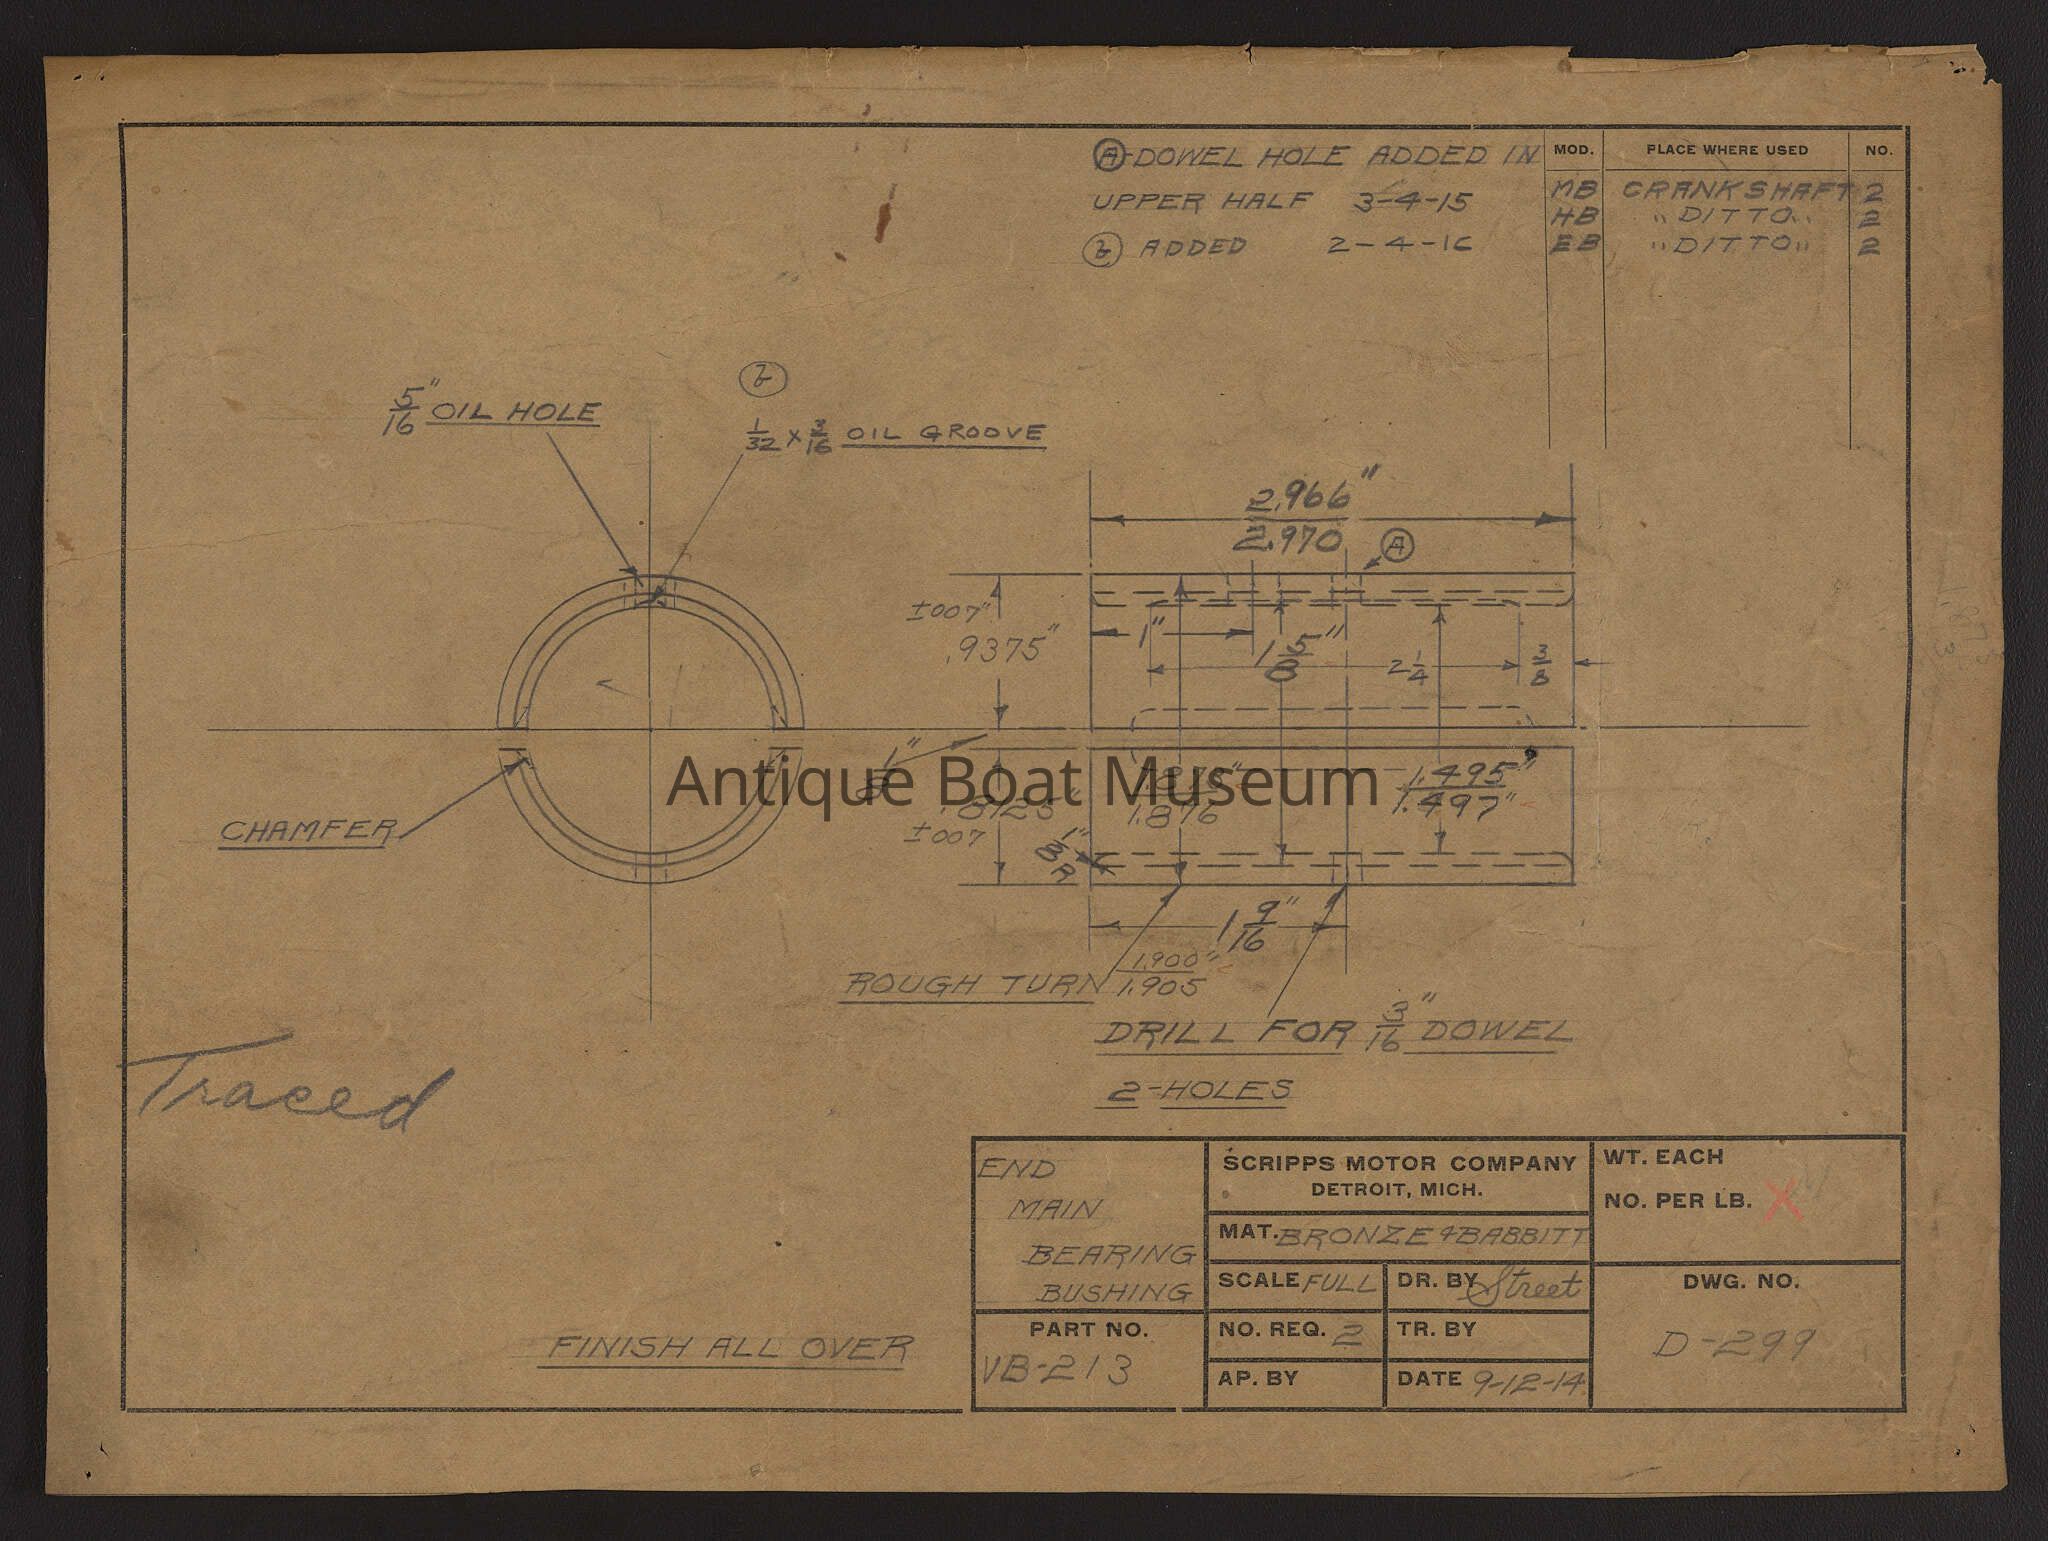 Ⓐ-DOWEL HOLE ADDED IN
UPPER HALF 3-4-15
ⓑ ADDED 2-4-16
MOD. PLACE WHERE USED NO.
MB CRANKSHAFT 2
HB "DITTO" 2
EB "DITTO" 2
5/16" OIL HOLE
ⓑ
1/32 x 3/16 OIL GROOVE
2.966"
2.970
Ⓐ
±007"
.9375"
1"
1 5/8"
2 1/4
3/8
CHAMFER
1/8"
.8125"
±007
1.875"
1.876
1.495"
1.497"
1/8" R
1 9/16"
ROUGH TURN 1.900"
1.905
DRILL FOR 3/16" DOWEL
2-HOLES
Antique Boat Museum
Traced
FINISH ALL OVER
END
MAIN
BEARING
BUSHING
PART NO.
VB-213
SCRIPPS MOTOR COMPANY
DETROIT, MICH.
MAT. BRONZE & BABBITT
SCALE FULL
DR. BY Street
NO. REQ. 2
TR. BY
AP. BY
DATE 9-12-14
WT. EACH
NO. PER LB. X
DWG. NO.
D-299